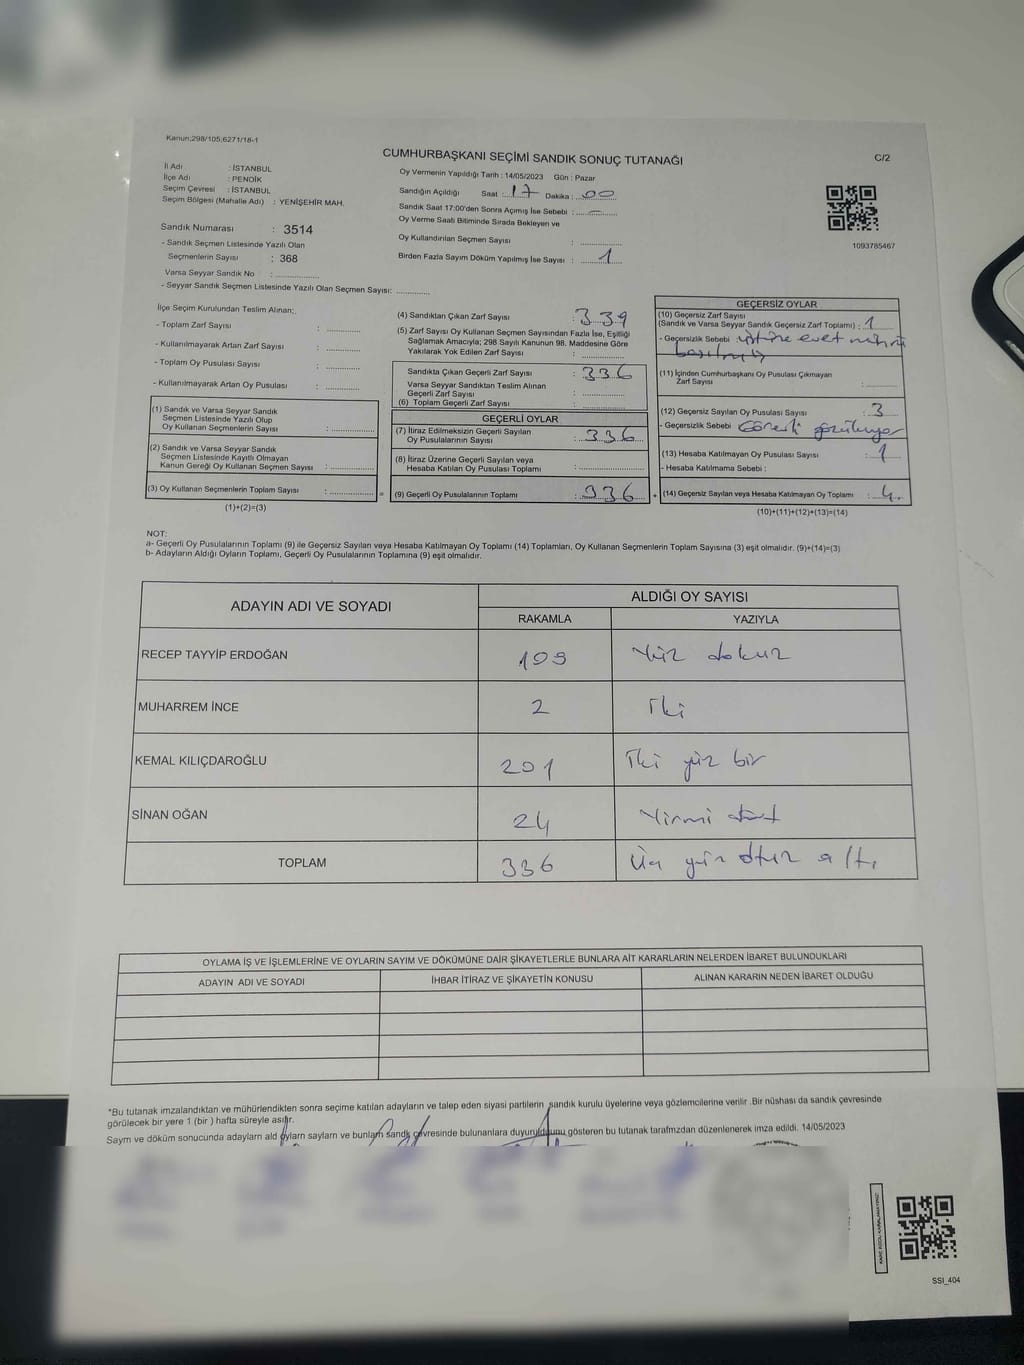 Kanun;298/105;6271/18-1
CUMHURBAŞKANI SEÇİMİ SANDIK SONUÇ TUTANAĞI
C/2
İl Adı : İSTANBUL
İlçe Adı : PENDİK
Seçim Çevresi : İSTANBUL
Seçim Bölgesi (Mahalle Adı) : YENİŞEHİR MAH.
Sandık Numarası : 3514
- Sandık Seçmen Listesinde Yazılı Olan
Seçmenlerin Sayısı : 368
Varsa Seyyar Sandık No : ...............
- Seyyar Sandık Seçmen Listesinde Yazılı Olan Seçmen Sayısı: ............
Oy Vermenin Yapıldığı Tarih : 14/05/2023 Gün : Pazar
Sandığın Açıldığı Saat : 17 Dakika : 00
Sandık Saat 17:00'den Sonra Açımış İse Sebebi : —
Oy Verme Saati Bitiminde Sırada Bekleyen ve
Oy Kullandırılan Seçmen Sayısı : ...............
Birden Fazla Sayım Döküm Yapılmış İse Sayısı : 1
1093785467
İlçe Seçim Kurulundan Teslim Alınan;.
- Toplam Zarf Sayısı : ............
- Kullanılmayarak Artan Zarf Sayısı : ............
- Toplam Oy Pusulası Sayısı : ............
- Kullanılmayarak Artan Oy Pusulası : ............
(1) Sandık ve Varsa Seyyar Sandık
Seçmen Listesinde Yazılı Olup
Oy Kullanan Seçmenlerin Sayısı : ...............
(2) Sandık ve Varsa Seyyar Sandık
Seçmen Listesinde Kayıtlı Olmayan
Kanun Gereği Oy Kullanan Seçmen Sayısı : ...............
(3) Oy Kullanan Seçmenlerin Toplam Sayısı : ............... =
(1)+(2)=(3)
(4) Sandıktan Çıkan Zarf Sayısı : 339
(5) Zarf Sayısı Oy Kullanan Seçmen Sayısından Fazla İse, Eşitliği
Sağlamak Amacıyla; 298 Sayılı Kanunun 98. Maddesine Göre
Yakılarak Yok Edilen Zarf Sayısı : ............
Sandıkta Çıkan Geçerli Zarf Sayısı : 336
Varsa Seyyar Sandıktan Teslim Alınan
Geçerli Zarf Sayısı : ............
(6) Toplam Geçerli Zarf Sayısı : ............
GEÇERLİ OYLAR
(7) İtiraz Edilmeksizin Geçerli Sayılan
Oy Pusulalarının Sayısı : 336
(8) İtiraz Üzerine Geçerli Sayılan veya
Hesaba Katılan Oy Pusulası Toplamı : ...............
(9) Geçerli Oy Pusulalarının Toplamı : 336 +
GEÇERSİZ OYLAR
(10) Geçersiz Zarf Sayısı
(Sandık ve Varsa Seyyar Sandık Geçersiz Zarf Toplamı) : 1
- Geçersizlik Sebebi üstüne evet mührü
basılmış
(11) İçinden Cumhurbaşkanı Oy Pusulası Çıkmayan
Zarf Sayısı : .........
(12) Geçersiz Sayılan Oy Pusulası Sayısı : 3
- Geçersizlik Sebebi
(13) Hesaba Katılmayan Oy Pusulası Sayısı : 1
- Hesaba Katılmama Sebebi :
(14) Geçersiz Sayılan veya Hesaba Katılmayan Oy Toplamı : 4
(10)+(11)+(12)+(13)=(14)
NOT:
a- Geçerli Oy Pusulalarının Toplamı (9) ile Geçersiz Sayılan veya Hesaba Katılmayan Oy Toplamı (14) Toplamları, Oy Kullanan Seçmenlerin Toplam Sayısına (3) eşit olmalıdır. (9)+(14)=(3)
b- Adayların Aldığı Oyların Toplamı, Geçerli Oy Pusulalarının Toplamına (9) eşit olmalıdır.
ADAYIN ADI VE SOYADI
ALDIĞI OY SAYISI
RAKAMLA YAZIYLA
RECEP TAYYİP ERDOĞAN 109 Yüz dokuz
MUHARREM İNCE 2 İki
KEMAL KILIÇDAROĞLU 201 İki yüz bir
SİNAN OĞAN 24 Yirmi dört
TOPLAM 336 Üç yüz otuz altı
OYLAMA İŞ VE İŞLEMLERİNE VE OYLARIN SAYIM VE DÖKÜMÜNE DAİR ŞİKAYETLERLE BUNLARA AİT KARARLARIN NELERDEN İBARET BULUNDUKLARI
ADAYIN ADI VE SOYADI İHBAR İTİRAZ VE ŞİKAYETİN KONUSU ALINAN KARARIN NEDEN İBARET OLDUĞU
*Bu tutanak imzalandıktan ve mühürlendikten sonra seçime katılan adayların ve talep eden siyasi partilerin sandık kurulu üyelerine veya gözlemcilerine verilir .Bir nüshası da sandık çevresinde
görülecek bir yere 1 (bir ) hafta süreyle asılır.
Sayım ve döküm sonucunda adayların ald oyların sayıların ve bunların sandık çevresinde bulunanlara duyurulduğunu gösteren bu tutanak tarafmzdan düzenlenerek imza edildi. 14/05/2023
KARE KODU KARALAMAYINIZ!
SSI_404